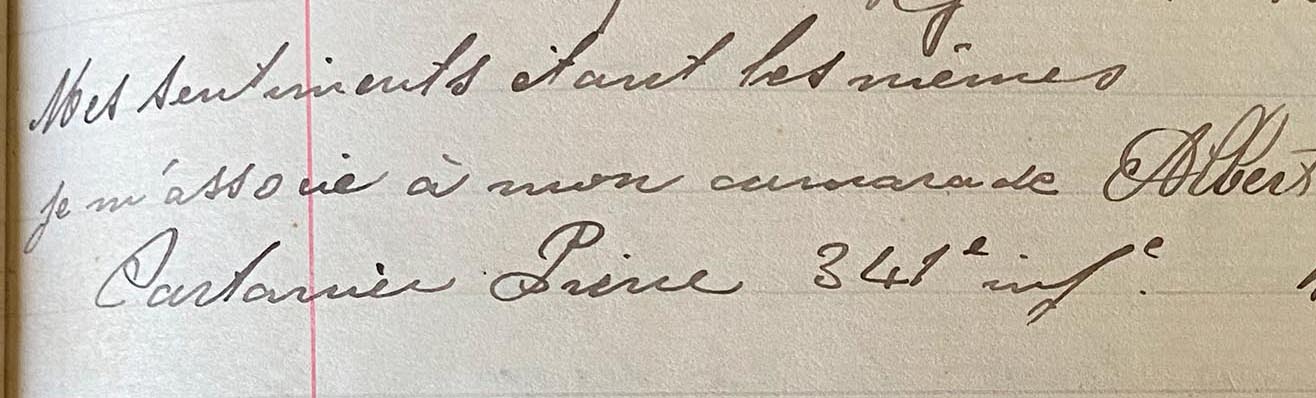 Mes sentiments étant les mêmes
je m'associe à mon camarade Albert
Castanier Pierre 341e infe.